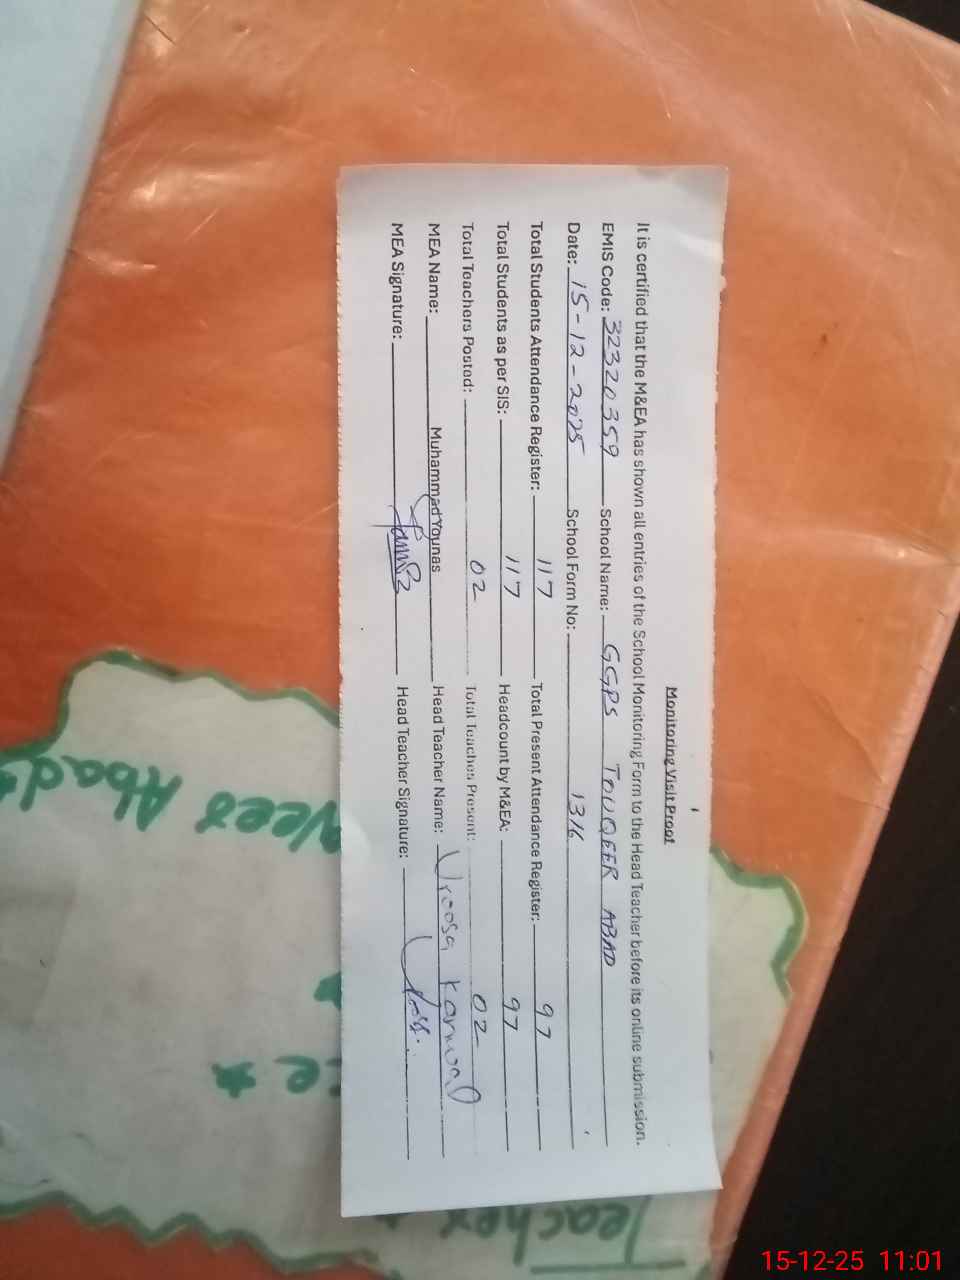 Monitoring Visit Proof
It is certified that the M&EA has shown all entries of the School Monitoring Form to the Head Teacher before its online submission.
EMIS Code: 32320359 School Name: GGPS TOUQEER ABAD
Date: 15-12-2025 School Form No: 1316
Total Students Attendance Register: 117 Total Present Attendance Register: 97
Total Students as per SIS: 117 Headcount by M&EA: 97
Total Teachers Posted: 02 Total Teaches Present: 02
MEA Name: Muhammad Younas Head Teacher Name: Uroosa Kanwal
MEA Signature: Head Teacher Signature:
Abad
Teacher
15-12-25 11:01